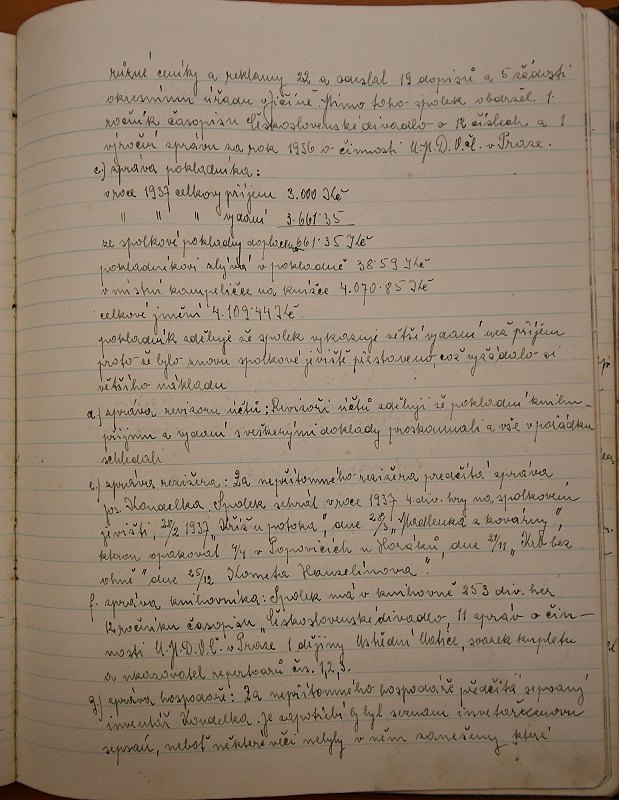 různé ceníky a reklamy 22 a odeslal 19 dopisů a 5 žádostí
okresnímu úřadu v Jičíně. Mimo toho spolek obdržel 1.
ročník časopisu Československé divadlo o 12 číslech a 1
výroční zprávu za rok 1936 o činnosti Ú.M.D.O.Č. v Praze.
c.) zpráva pokladníka:
v roce 1937 celkový příjem 3.000 Kč
" " " vydání 3.661.35
ze spolkové pokladny doplaceno 661.35 Kč
pokladníkovi zbývá v pokladně 38.59 Kč
v místní kampeličce na knížce 4.070.85 Kč
celkové jmění 4.109.44 Kč.
pokladník sděluje že spolek vykazuje větší vydání než příjem
proto že bylo znovu spolkové jeviště přistaveno, což vyžádalo si
většího nákladu
d.) zpráva revisorů účtů: Revisoři účtů sdělují že pokladní knihu
příjmu a vydání s veškerými doklady proskoumali a vše v pořádku
schledali
e.) zpráva režiséra: Za nepřítomného režiséra předčítá zprávu
jos. Kondelka. Spolek sehrál v roce 1937 4 div. hry na spolkovém
jevišti, 28/2 1937 "Kříž u potoka", dne 28/3 "Madlenka z kovárny",
kterou opakoval 4/4 v Popovicích u Horáků, dne 21/11 "Krb bez
ohně" dne 25/12 "Kometa Hanzelínova".
f. zpráva knihovníka: Spolek má v knihovně 253 div. her
12 ročníku časopisu "Československé divadlo, 11 zpráv o čin-
nosti Ú.M.D.O.Č. v Praze 1 dějiny Ústřední Matice, svazek kupletu
a ukazovatel repertoárů čís. 1,2,3.
g.) zpráva hospodáře: Za nepřítomného hospodáře předčítá sepsaný
inventář Kondelka. je zapotřebí by byl seznam
sepsán, neboť některé věci nebyly v něm zaneseny které